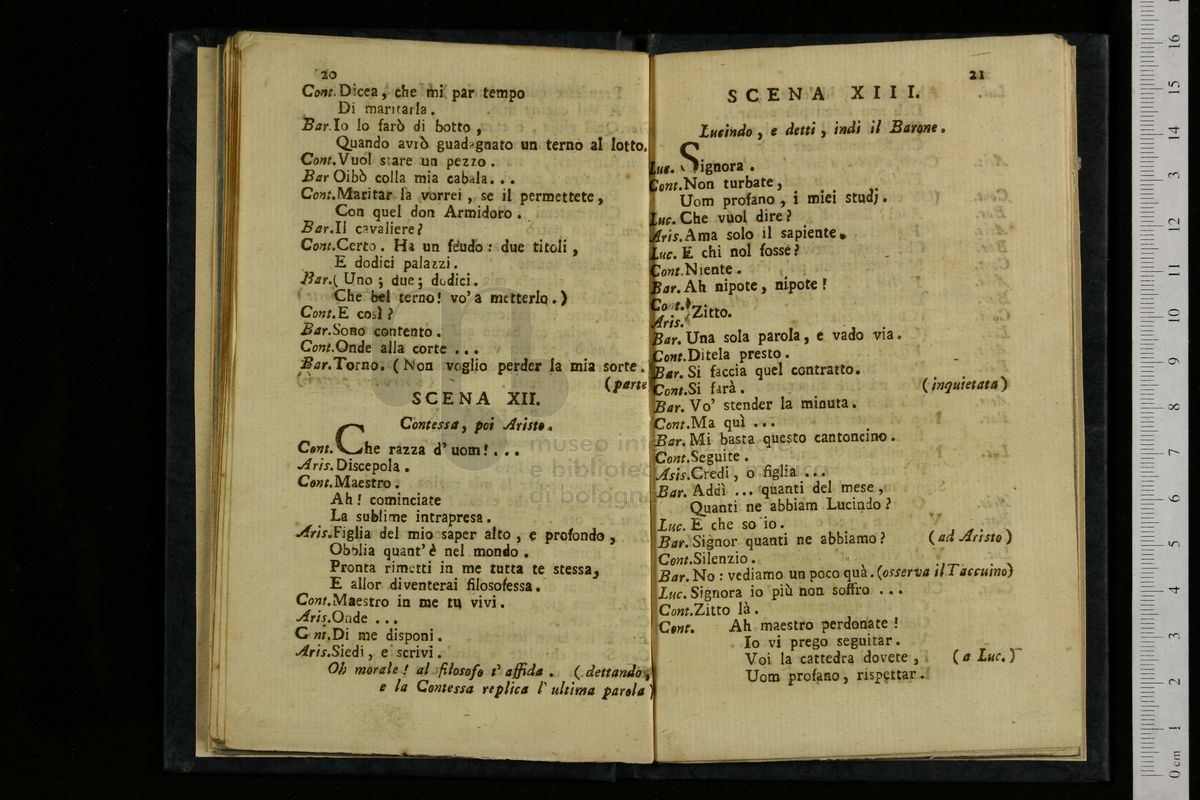 20
Cont. Dicea, che mi par tempo
Di maritarla.
Bar. Io lo farò di botto,
Quando avrò guadagnato un terno al lotto.
Cont. Vuol stare un pezzo.
Bar Oibò colla mia cabala...
Cont. Maritar la vorrei, se il permettete,
Con quel don Armidoro.
Bar. Il cavaliere?
Cont. Certo. Ha un feudo: due titoli,
E dodici palazzi.
Bar. (Uno; due; dodici.
Che bel terno! vo' a metterlo.)
Cont. E così?
Bar. Sono contento.
Cont. Onde alla corte ...
Bar. Torno. (Non voglio perder la mia sorte.
(parte
SCENA XII.
Contessa, poi Aristo.
Cont. Che razza d'uom!...
Aris. Discepola.
Cont. Maestro.
Ah! cominciate
La sublime intrapresa.
Aris. Figlia del mio saper alto, e profondo,
Obblia quant'è nel mondo.
Pronta rimetti in me tutta te stessa,
E allor diventerai filosofessa.
Cont. Maestro in me tu vivi.
Aris. Onde ...
Cont. Di me disponi.
Aris. Siedi, e scrivi.
Oh morale! al filosofo t'affida. (dettando,
e la Contessa replica l'ultima parola)
21
SCENA XIII.
Lucindo, e detti, indi il Barone.
Luc. Signora.
Cont. Non turbate,
Uom profano, i miei studj.
Luc. Che vuol dire?
Aris. Ama solo il sapiente.
Luc. E chi nol fosse?
Cont. Niente.
Bar. Ah nipote, nipote!
Cont.
Aris. } Zitto.
Bar. Una sola parola, e vado via.
Cont. Ditela presto.
Bar. Si faccia quel contratto.
Cont. Si farà. (inquietata)
Bar. Vo' stender la minuta.
Cont. Ma quì ...
Bar. Mi basta questo cantoncino.
Cont. Seguite.
Asis. Credi, o figlia ...
Bar. Addì ... quanti del mese,
Quanti ne abbiam Lucindo?
Luc. E che so io.
Bar. Signor quanti ne abbiamo? (ad Aristo)
Cont. Silenzio.
Bar. No: vediamo un poco quà. (osserva il Taccuino)
Luc. Signora io più non soffro ...
Cont. Zitto là.
Cont. Ah maestro perdonate!
Io vi prego seguitar.
Voi la cattedra dovete, (a Luc.)
Uom profano, rispettar.